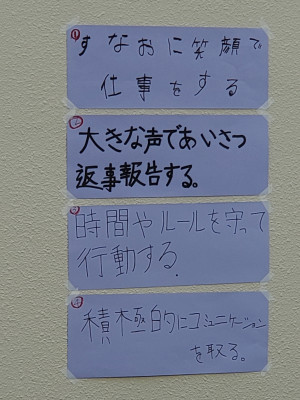 ① すなおに笑顔で
仕事をする
② 大きな声であいさつ
返事報告する。
③ 時間やルールを守って
行動する.
④ 積極的にコミュニケーション
を取る。